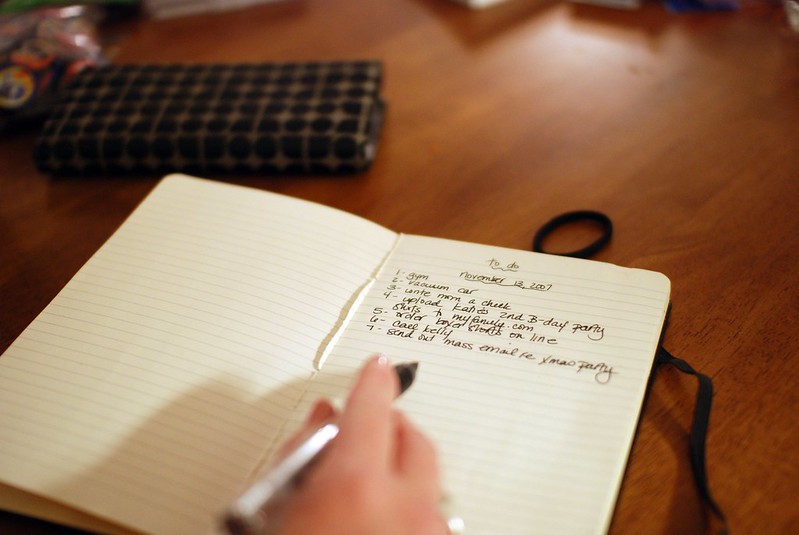 to do
November 13, 2007
1- gym
2- vacuum car
3- write mom a check
4- upload Katie's 2nd B-day party
shots to myfamily.com
5- order boxer shorts on line
6- call Kelly
7- send out mass email re Xmas party